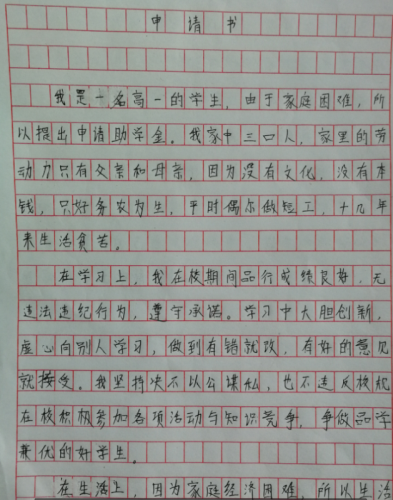 申请书
我是一名高一的学生，由于家庭困难，所
以提出申请助学金。我家中三口人，家里的劳
动力只有父亲和母亲，因为没有文化，没有本
钱，只好务农为生，平时偶尔做短工，十几年
来生活贫苦。
在学习上，我在校期间品行成绩良好，无
违法违纪行为，遵守承诺。学习中大胆创新，
虚心向别人学习，做到有错就改，有好的意见
就接受。我坚持决不以公谋私，也不违反校规
在校积极参加各项活动与知识竞争，争做品学
兼优的好学生。
在生活上，因为家庭经济困难，所以生活